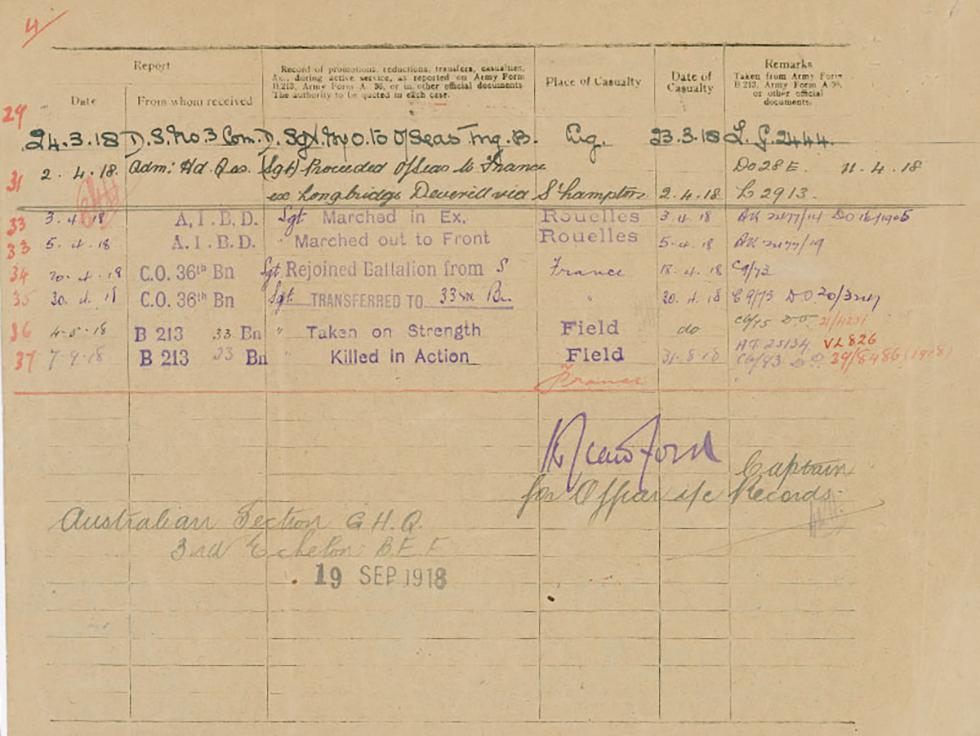 4
Report
Record of promotions, reductions, transfers, casualties,
&c., during active service, as reported on Army Form
B.213, Army Form A. 36, or in other official documents
The authority to be quoted in each case.
Place of Casualty
Date of
Casualty
Remarks
Taken from Army Form
B.213, Army Form A.36,
or other official
documents.
Date
From whom received
29
24.3.18 D.S. No 3 Com. D. Sgt M/O to O/Seas Tng. B. Eng. 23.3.18 L.G. 2444
31 2.4.18. Adm: Hd. Qrs. (Sgt) Proceeded O/Seas to France DO 28 E. 11.4.18
ex Longbridge Deverill via S'hampton 2.4.18 L 2913
33 3.4.18 A.I.B.D. Sgt Marched in Ex. Rouelles 3.4.18
33 5.4.18 A.I.B.D. " Marched out to Front Rouelles 5.4.18
34 .4.18 C.O. 36th Bn Sgt Rejoined Battalion from S France 18.4.18 C9/73
35 30.4.18 C.O. 36th Bn Sgt. TRANSFERRED TO 33rd Bn. " 30.4.18 C9/73 D.O.
36 4.5.18 B 213 33 Bn " Taken on Strength Field do
37 7.9.18 B 213 33 Bn " Killed in Action Field 31.8.18 VL826
France
Crawford Captain
for Officer i/c Records.
Australian Section G.H.Q.
3rd Echelon B.E.F.
19 SEP 1918